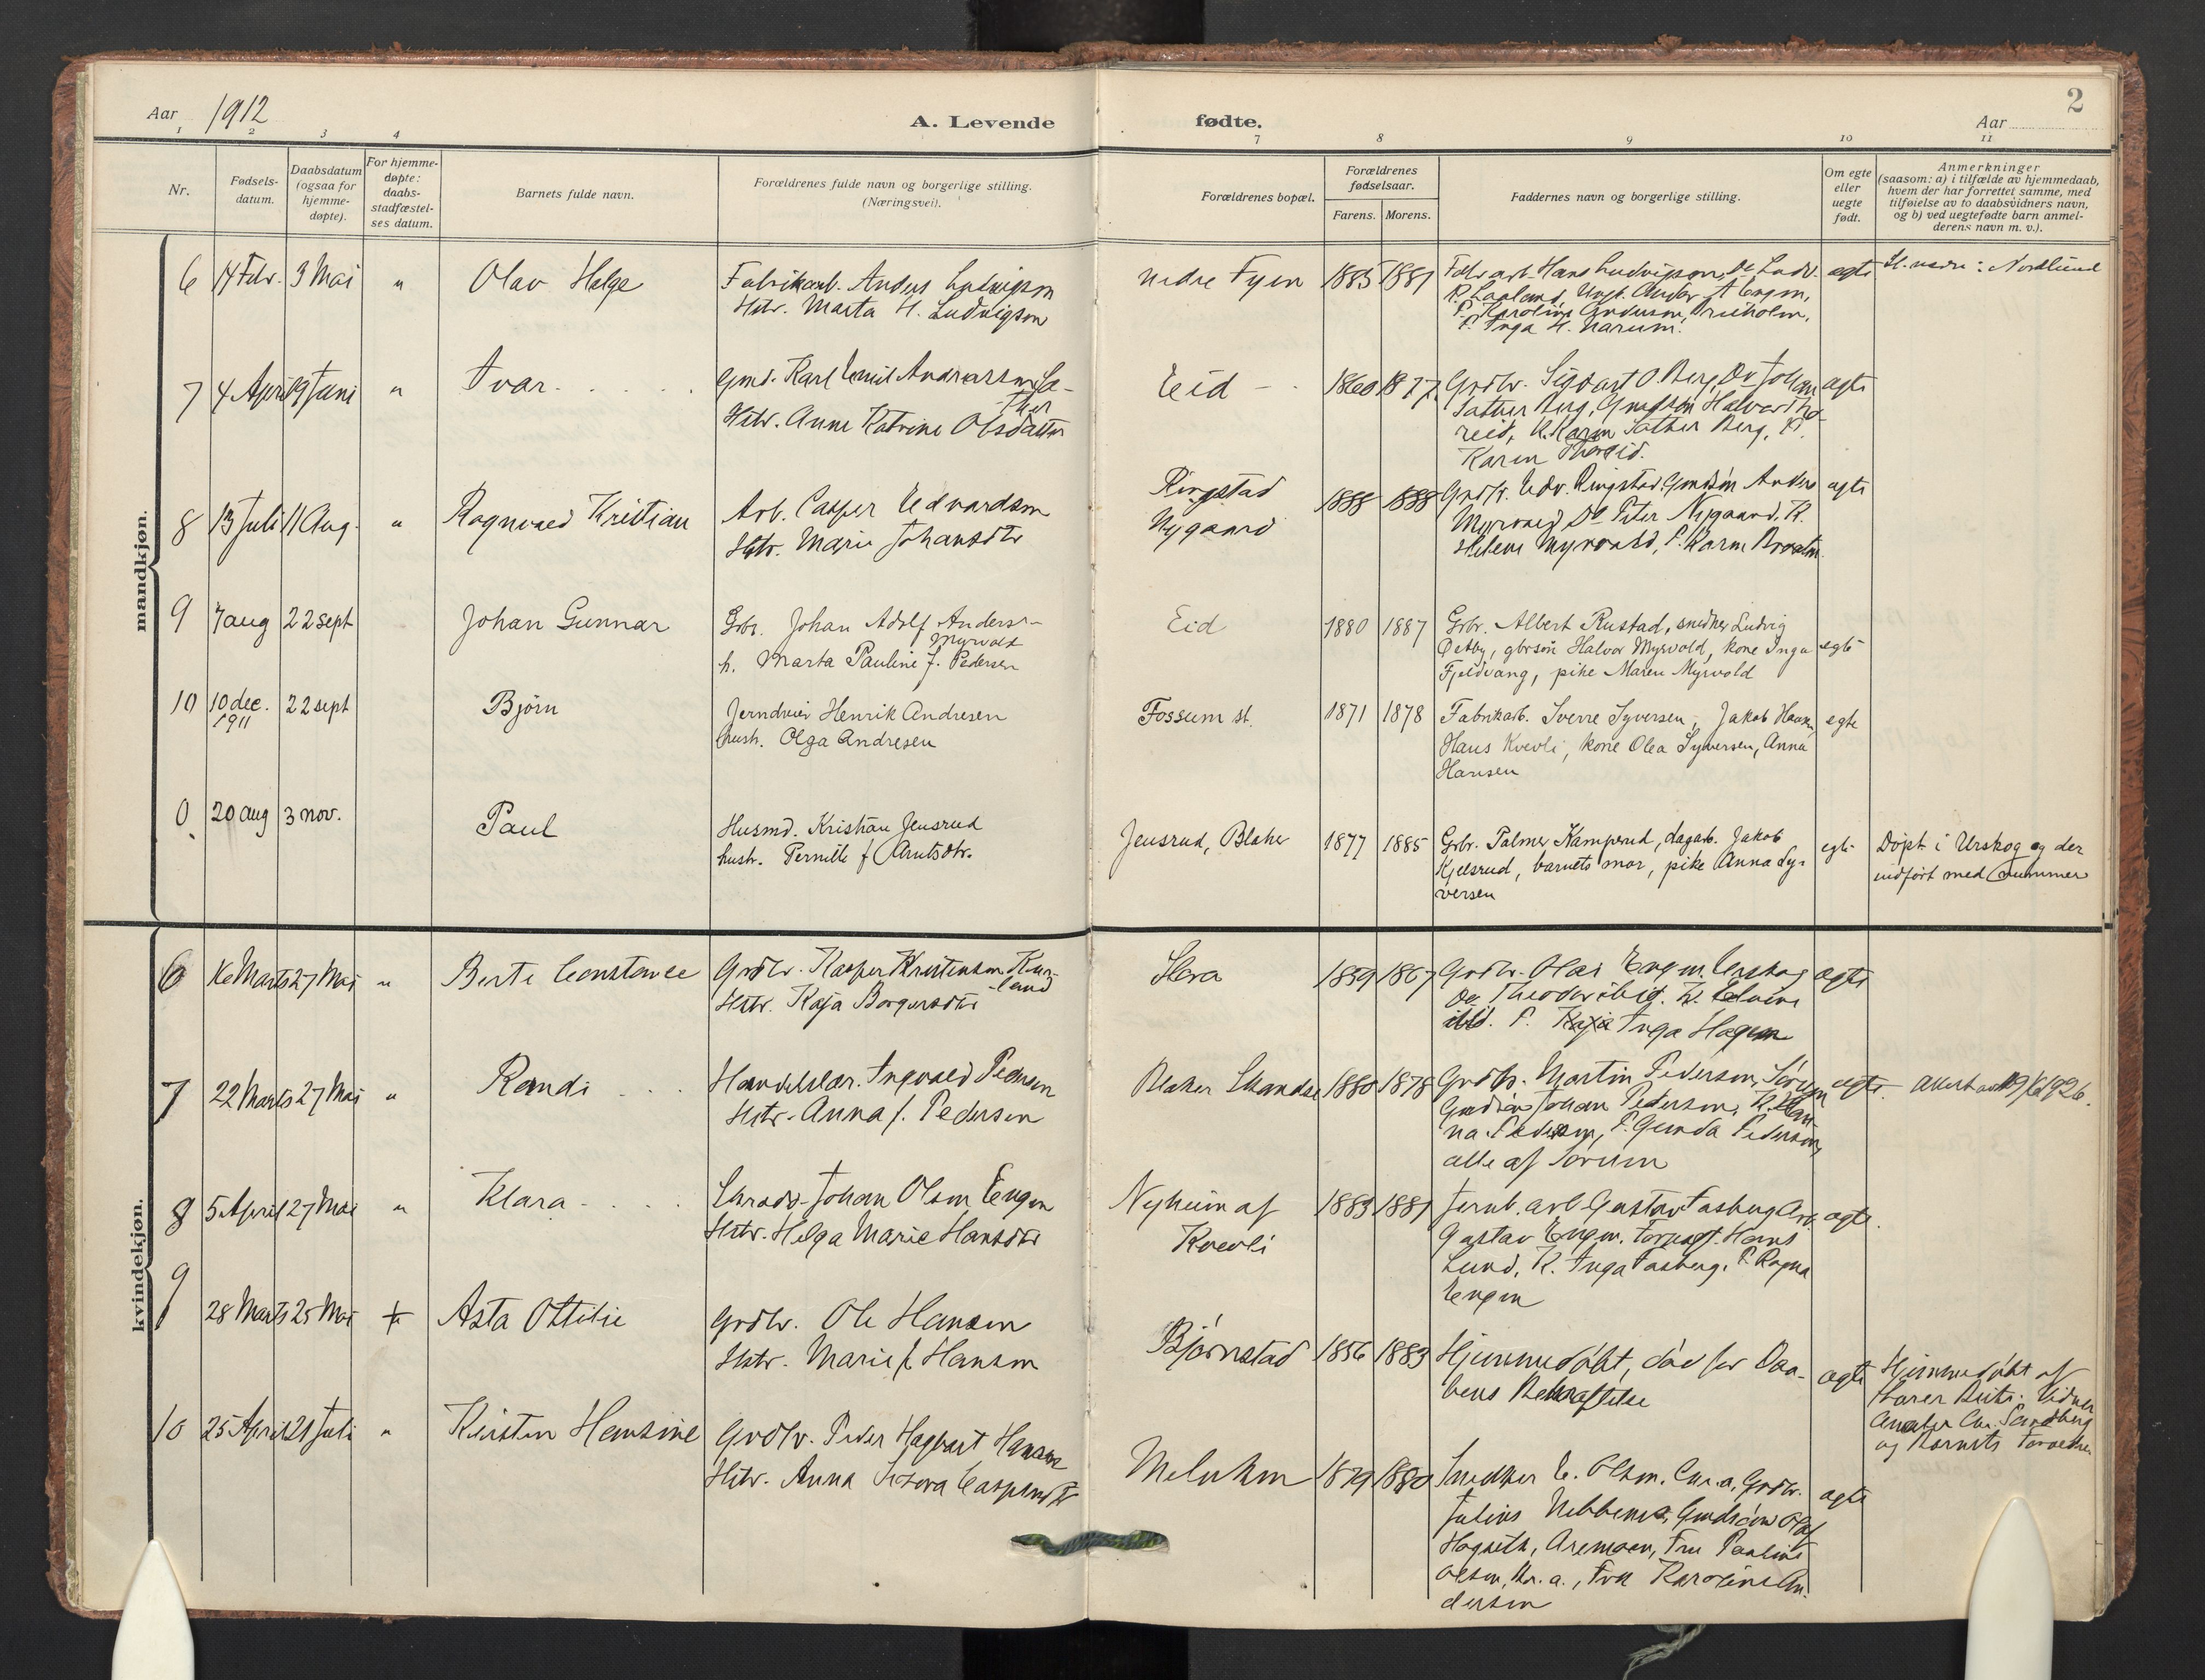 Aar 1912
A. Levende
fødte.
2
Aar
1 2 3 4 7 8 9 10 11
Nr.
Fødsels-
datum.
Daabsdatum
(ogsaa for
hjemme-
døpte).
For hjemme-
døpte:
daabs-
stadfæstel-
ses datum.
Barnets fulde navn.
Forældrenes fulde navn og borgerlige stilling.
(Næringsvei).
Forældrenes bopæl.
Forældrenes
fødselsaar.
Farens. Morens.
Faddernes navn og borgerlige stilling.
Om egte
eller
uegte
født.
Anmerkninger
(saasom: a) i tilfælde av hjemmedaab,
hvem der har forrettet samme, med
tilføielse av to daabsvidners navn,
og b) ved uegtefødte barn anmel-
derens navn m. v.).
mandkjøn.
6 14 Febr. 3 Mai " Olav Helge
Fabrikarb. Anders Ludvigson
Hstr. Marta H. Ludvigson
nedre Fyen 1885 1881
Fabr arb. Hans Ludvigson, Do Ludv.
P. Karoline Anderson,
P. Inga H. Narum.
egte
7 4 April 9 Juni " Ivar
Gmd. Karl Emil Andreassen Sa-
ther
Hstr. Anne Katrine Olsdatter
Eid 1860 1877
Grdbr. Sigvart O. Berg, Do Johan
Sather Berg, Halvor Tho-
reid, K. Karen Sather Berg, P.
Karen Thoreid.
egte
8 13 Juli 11 Aug. " Ragnvald Kristian
Arb. Casper Edvardsen
Hstr. Marie Johansdtr
Ringstad
Nygaard
1888 1888
Grdbr. Edv. Ringstad. Gmdsøn Anders
Myrvold Do Peter Nygaard, K.
Helene Myrvold, P. Karen
egte
9 7 aug 22 sept Johan Gunnar
Grbr. Johan Adolf Anders-
Myrvold
h. Marta Pauline f. Pedersen
Eid 1880 1887
Grbr. Albert Rustad, snedker Ludvig
Østby, gbrsøn Halvor Myrvold, kone Inga
Fjeldvang, pike Maren Myrvold
egte
10 10 dec.
1911
22 sept Bjørn
Jerndreier Henrik Andresen
hustr. Olga Andresen
Fossum st. 1871 1878
Fabrikarb. Sverre Syversen, Jakob
Hans Kvevli, kone Olea Syversen, Anna
Hansen
egte
0 20 aug 3 nov. Paul
Husmd. Kristian Jensrud
hustr. Pernille f. Arntsdtr.
Jensrud, Blaker 1877 1885
Grbr. Palmer Kamperud, dagarb. Jakob
Kjelsrud, barnets mor, pike Anna Sy-
versen
egte
Døpt i Urskog og der
indført med nummer
kvindekjøn.
6 16 Marts 27 Mai " Berte Constance
Grdbr. Kasper Kristensen
Hstr. Kaja Borgersdtr
1859 1867
Grdbr. Olai Engen. Urskog
Do Theodor ibid.
ibid. P. Kaja Inga Hagen
egte
7 22 Marts 27 Mai " Randi
Handelsbær. Ingvald Pedersen
Hstr. Anna f. Pedersen
Blaker Skandse 1880 1878
Grdbr. Martin Pederson, Sørum
Gmdsøn Johan Pederson,
na Pederson, P. Gunda Pederson,
alle af Sørum
egte
9/6 1926.
8 5 April 27 Mai " Klara
Johan Olsen Engen
Hstr. Helga Marie Hansdtr
Nyheim af
Kvevli
1883 1881
Jernb. arb Gustav Fosberg Arb.
Gustav Engen, Hans
Lund, K. Inga Fosberg, P. Ragna
Engen
egte
9 28 Marts 25 Mai + Asta Ottilie
Grdbr. Ole Hansen
Hstr. Marie f. Hansen
Bjørnstad 1856 1883
Hjemmedøbt, død før Daa-
bens Bekræftelse
egte
Hjemmedøbt af
og Barnets Forældre
10 25 April 21 Juli " Kirsten Hansine
Grdbr. Peder Hagbart Hansen
Hstr. Anna Casperdtr
1879 1880
Snedker E. Olsen, Chr.a, Grdbr.
Julius Nebbenes, Gmdsøn Olaf
Hagseth, Aremoen, Fru Pauline
Olsen, Kr.a., Fru Karoline An-
dersen
egte